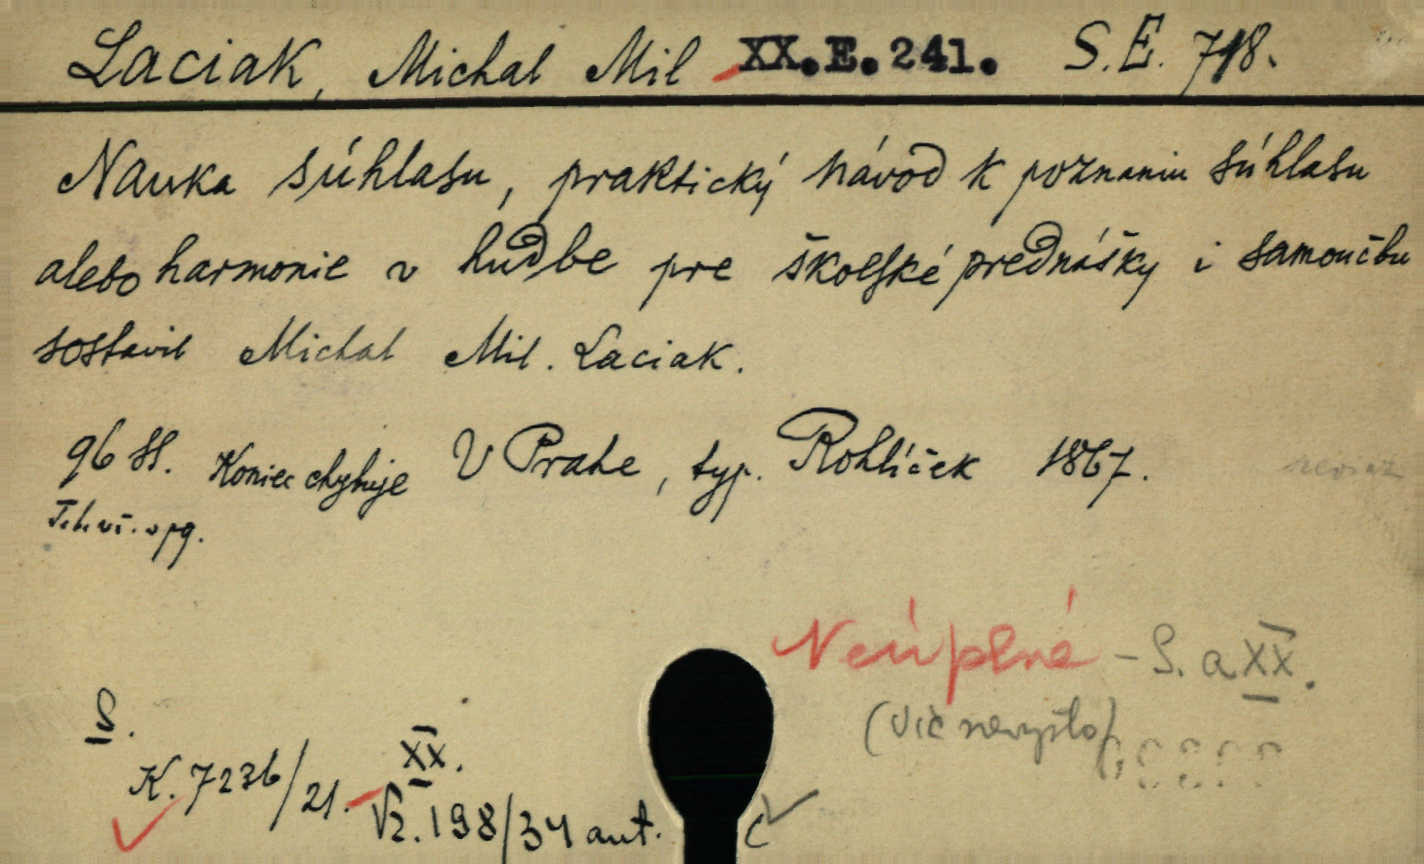 Laciak, Michal Mil XX.E.241. S.E. 718.
Nauka súhlasu, praktický návod k poznaniu súhlasu
alebo harmonie v hudbe pre školské prednášky i samoučbu
sostavil Michal Mil. Laciak.
96 ss. Koniec chybuje V Prahe, typ. Rohlíček 1867.
v pg.
Neúplné - S. a XX.
(Víc nevyšlo)
S. XX.
K. 7236/21. Vz. 198/34 aut.